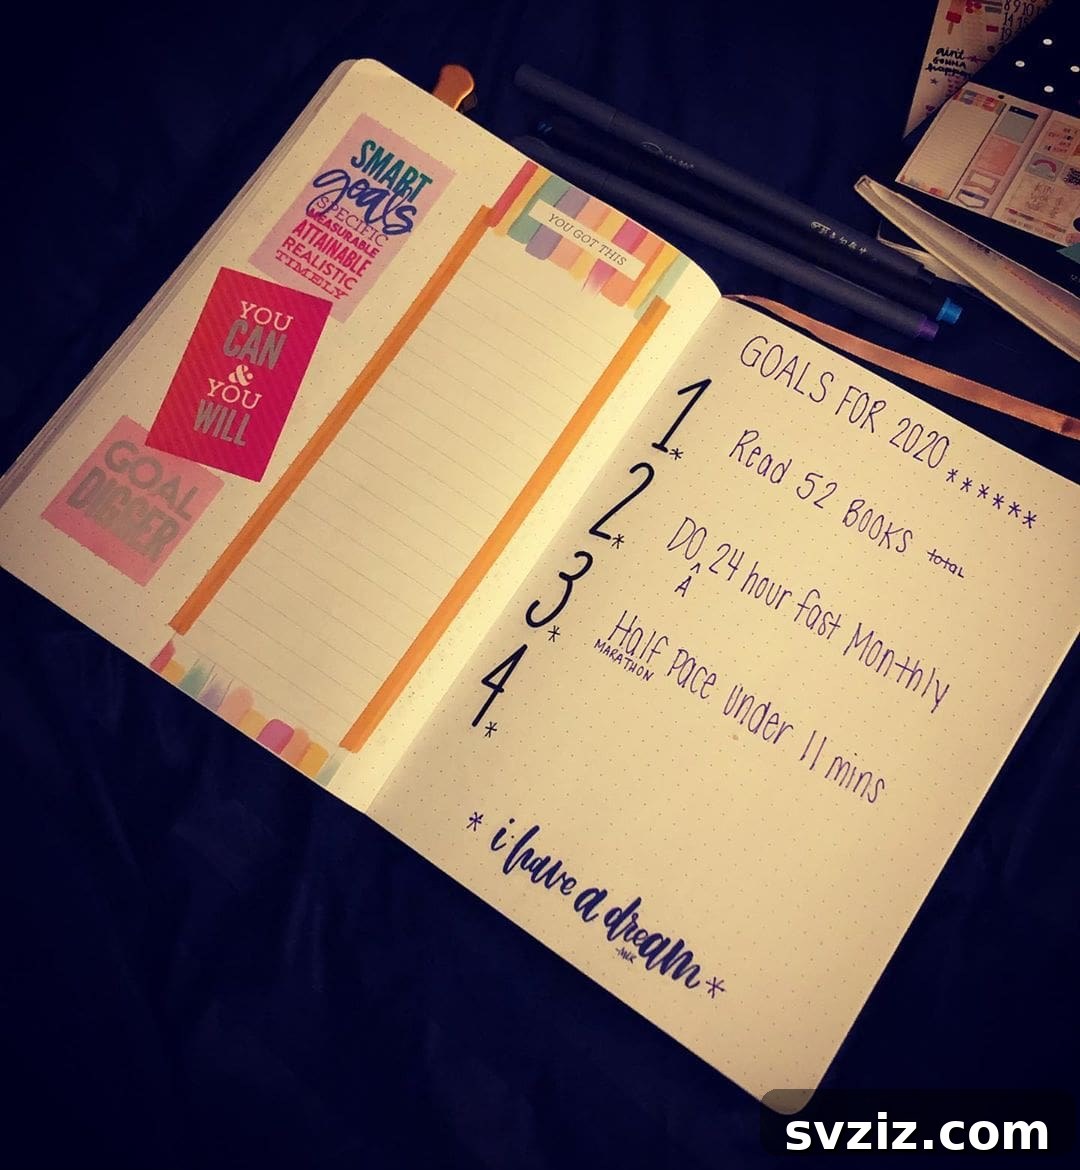 SMART
goals
SPECIFIC
MEASURABLE
ATTAINABLE
REALISTIC
TIMELY
YOU
CAN
&
YOU
WILL
GOAL
DIGGER
YOU GOT THIS
GOALS FOR 2020 ******
1* Read 52 BOOKS total
2* DO ^ 24 hour fast Monthly
A
3* Half Pace under 11 mins
MARATHON
4*
* i have a dream *
-MLK
ain't
GONNA
happen
svziz.com